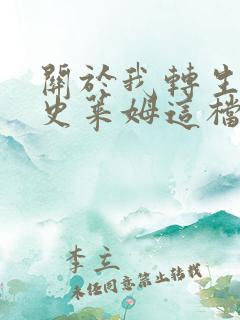 關於我轉生
史萊姆這檔
李立
未經同意禁止轉載